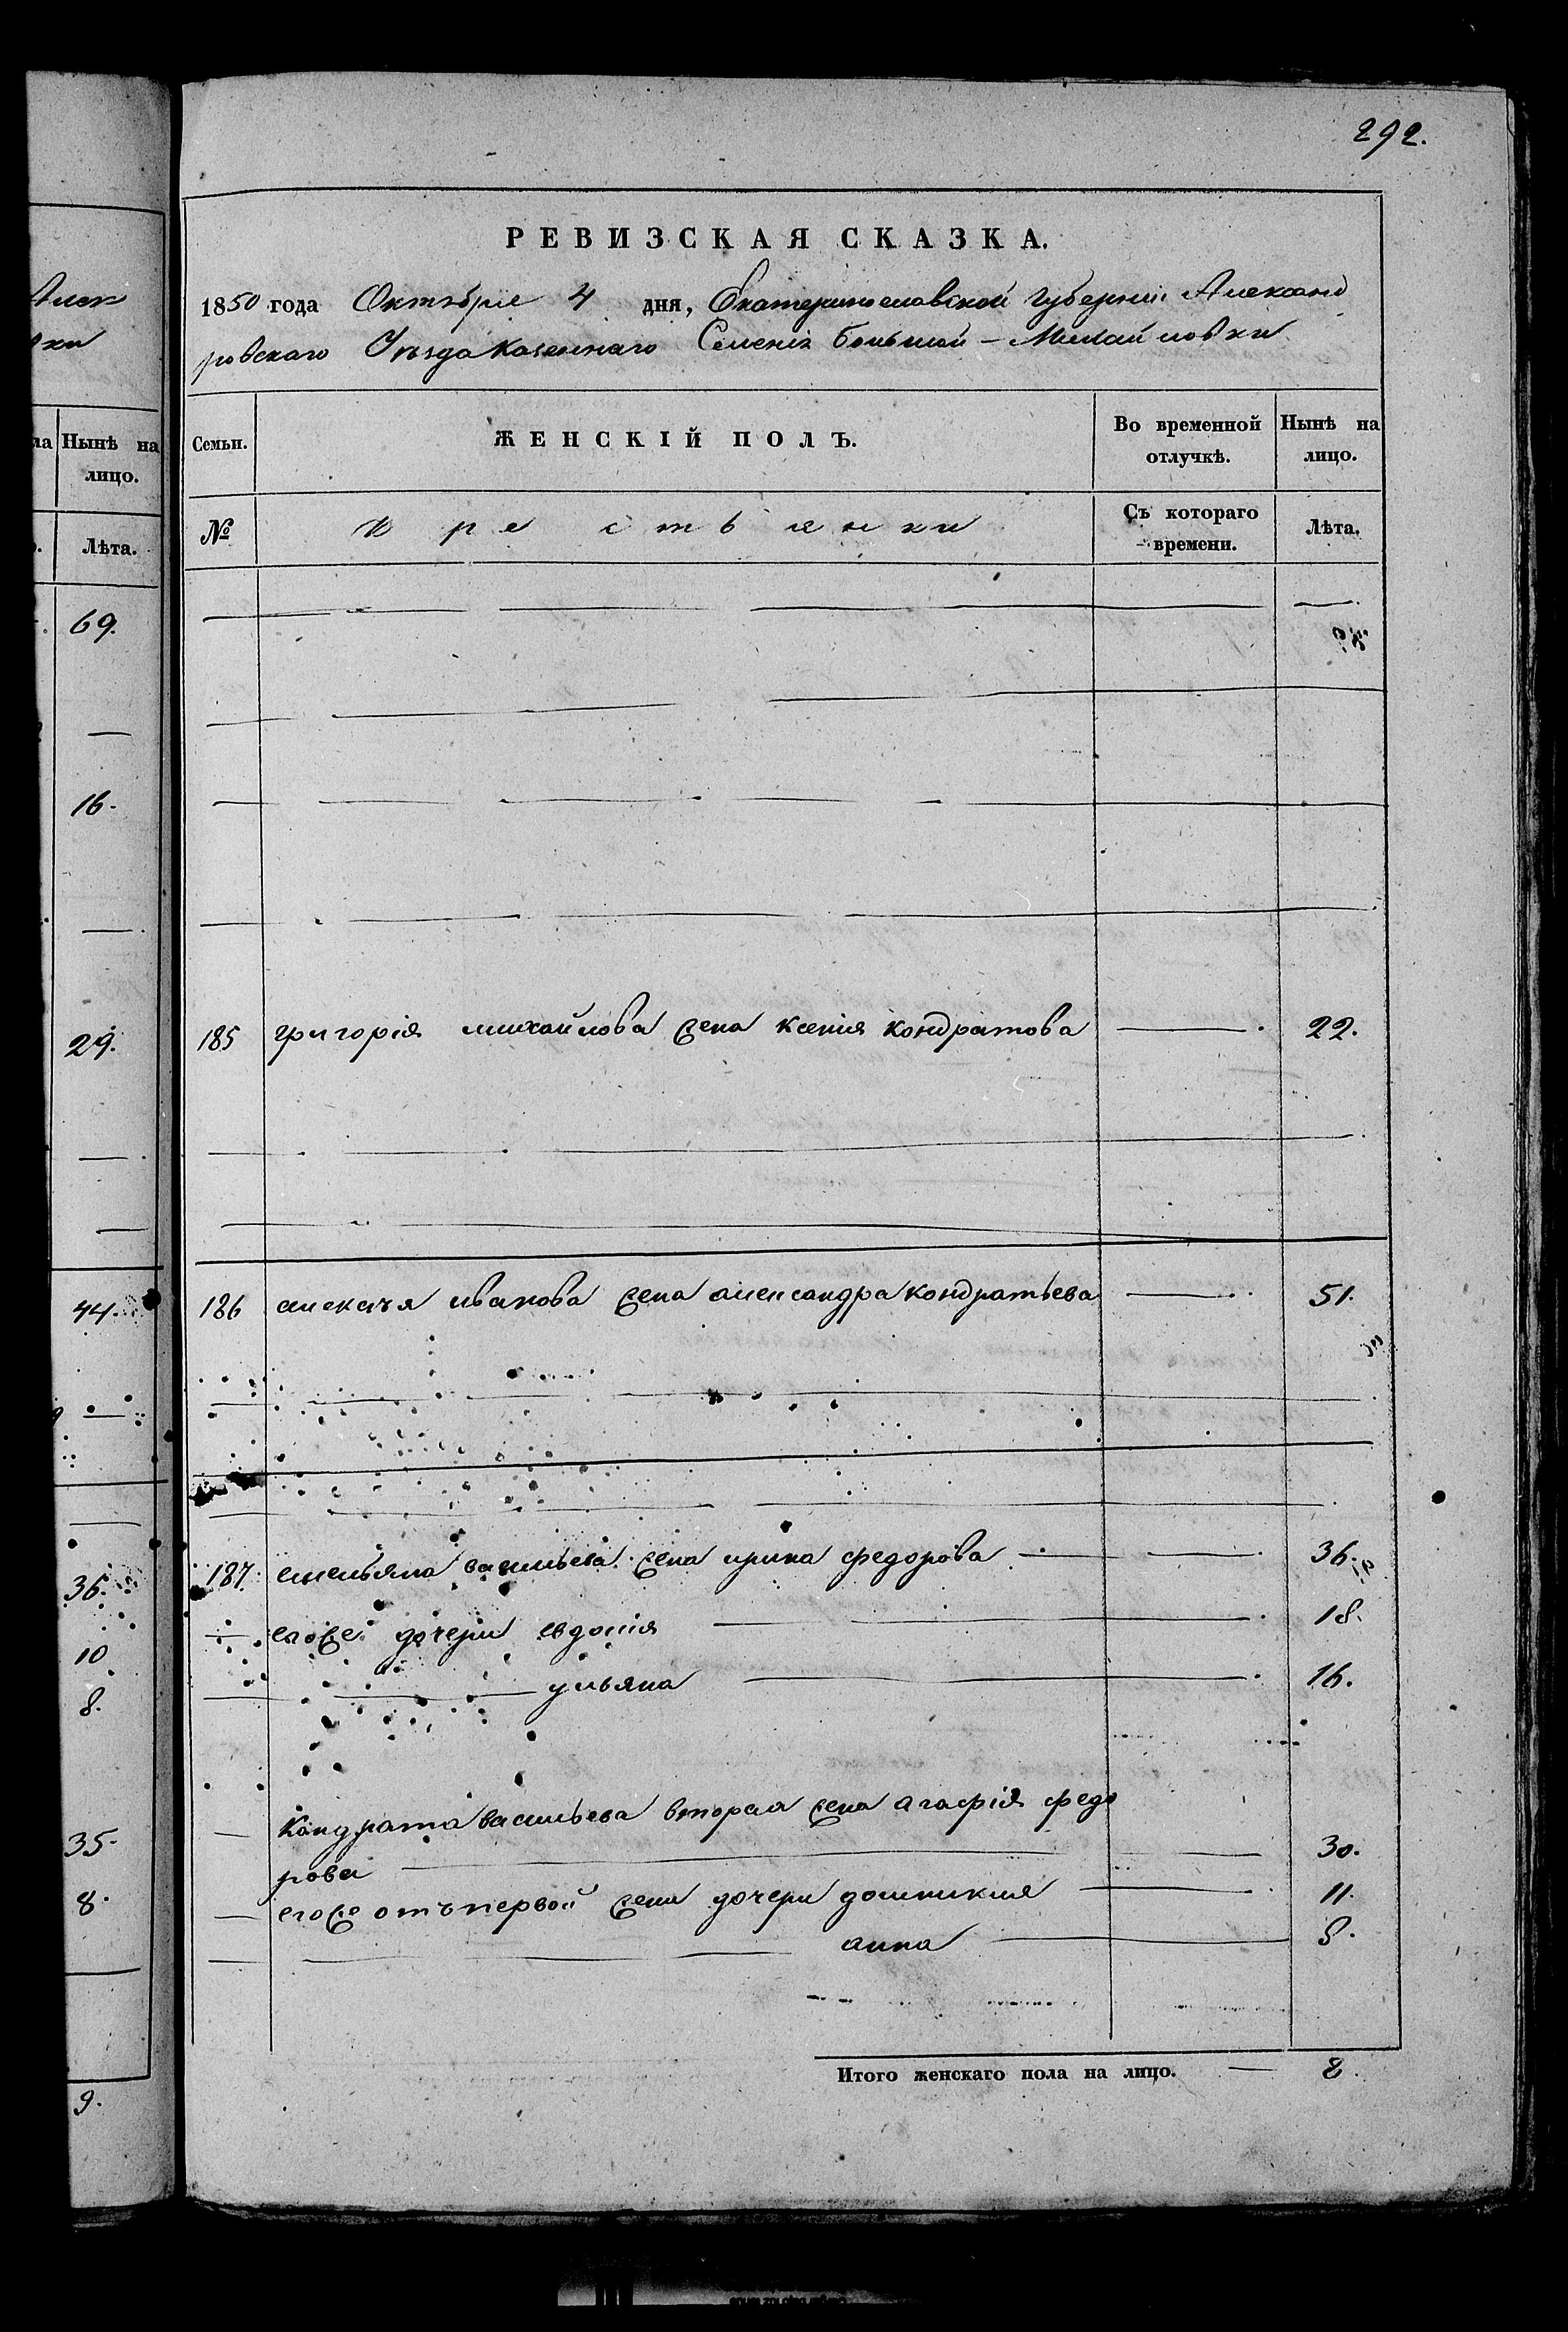 Алек
вки
ла Нынѣ на
лицо.
Лѣта.
69.
16.
29.
44.
36.
10
8.
35.
8.
9.
292.
РЕВИЗСКАЯ СКАЗКА.
1850 года Октября 4 дня, Екатеринославской Губерніи Александ
ровскаго Уѣзда Казеннаго Селенія Большой-Михайловки
Семьи. ЖЕНСКІЙ ПОЛЪ. Во временной отлучкѣ. Нынѣ на лицо.
№ Крестьянки Съ котораго времени. Лѣта.
185 григорія михайлова жена ксенія кондратова 22.
186 алексѣя иванова жена александра кондратьева 51.
187. емельяна васильева жена ирина федорова 36.
егоже дочери евдокія 18.
ульяна 16.
Кондрата васильева вторая жена агафія федо
рова 30.
егоже отъ первой жены дочери домникия 11.
анна
Итого женскаго пола на лицо. 8.